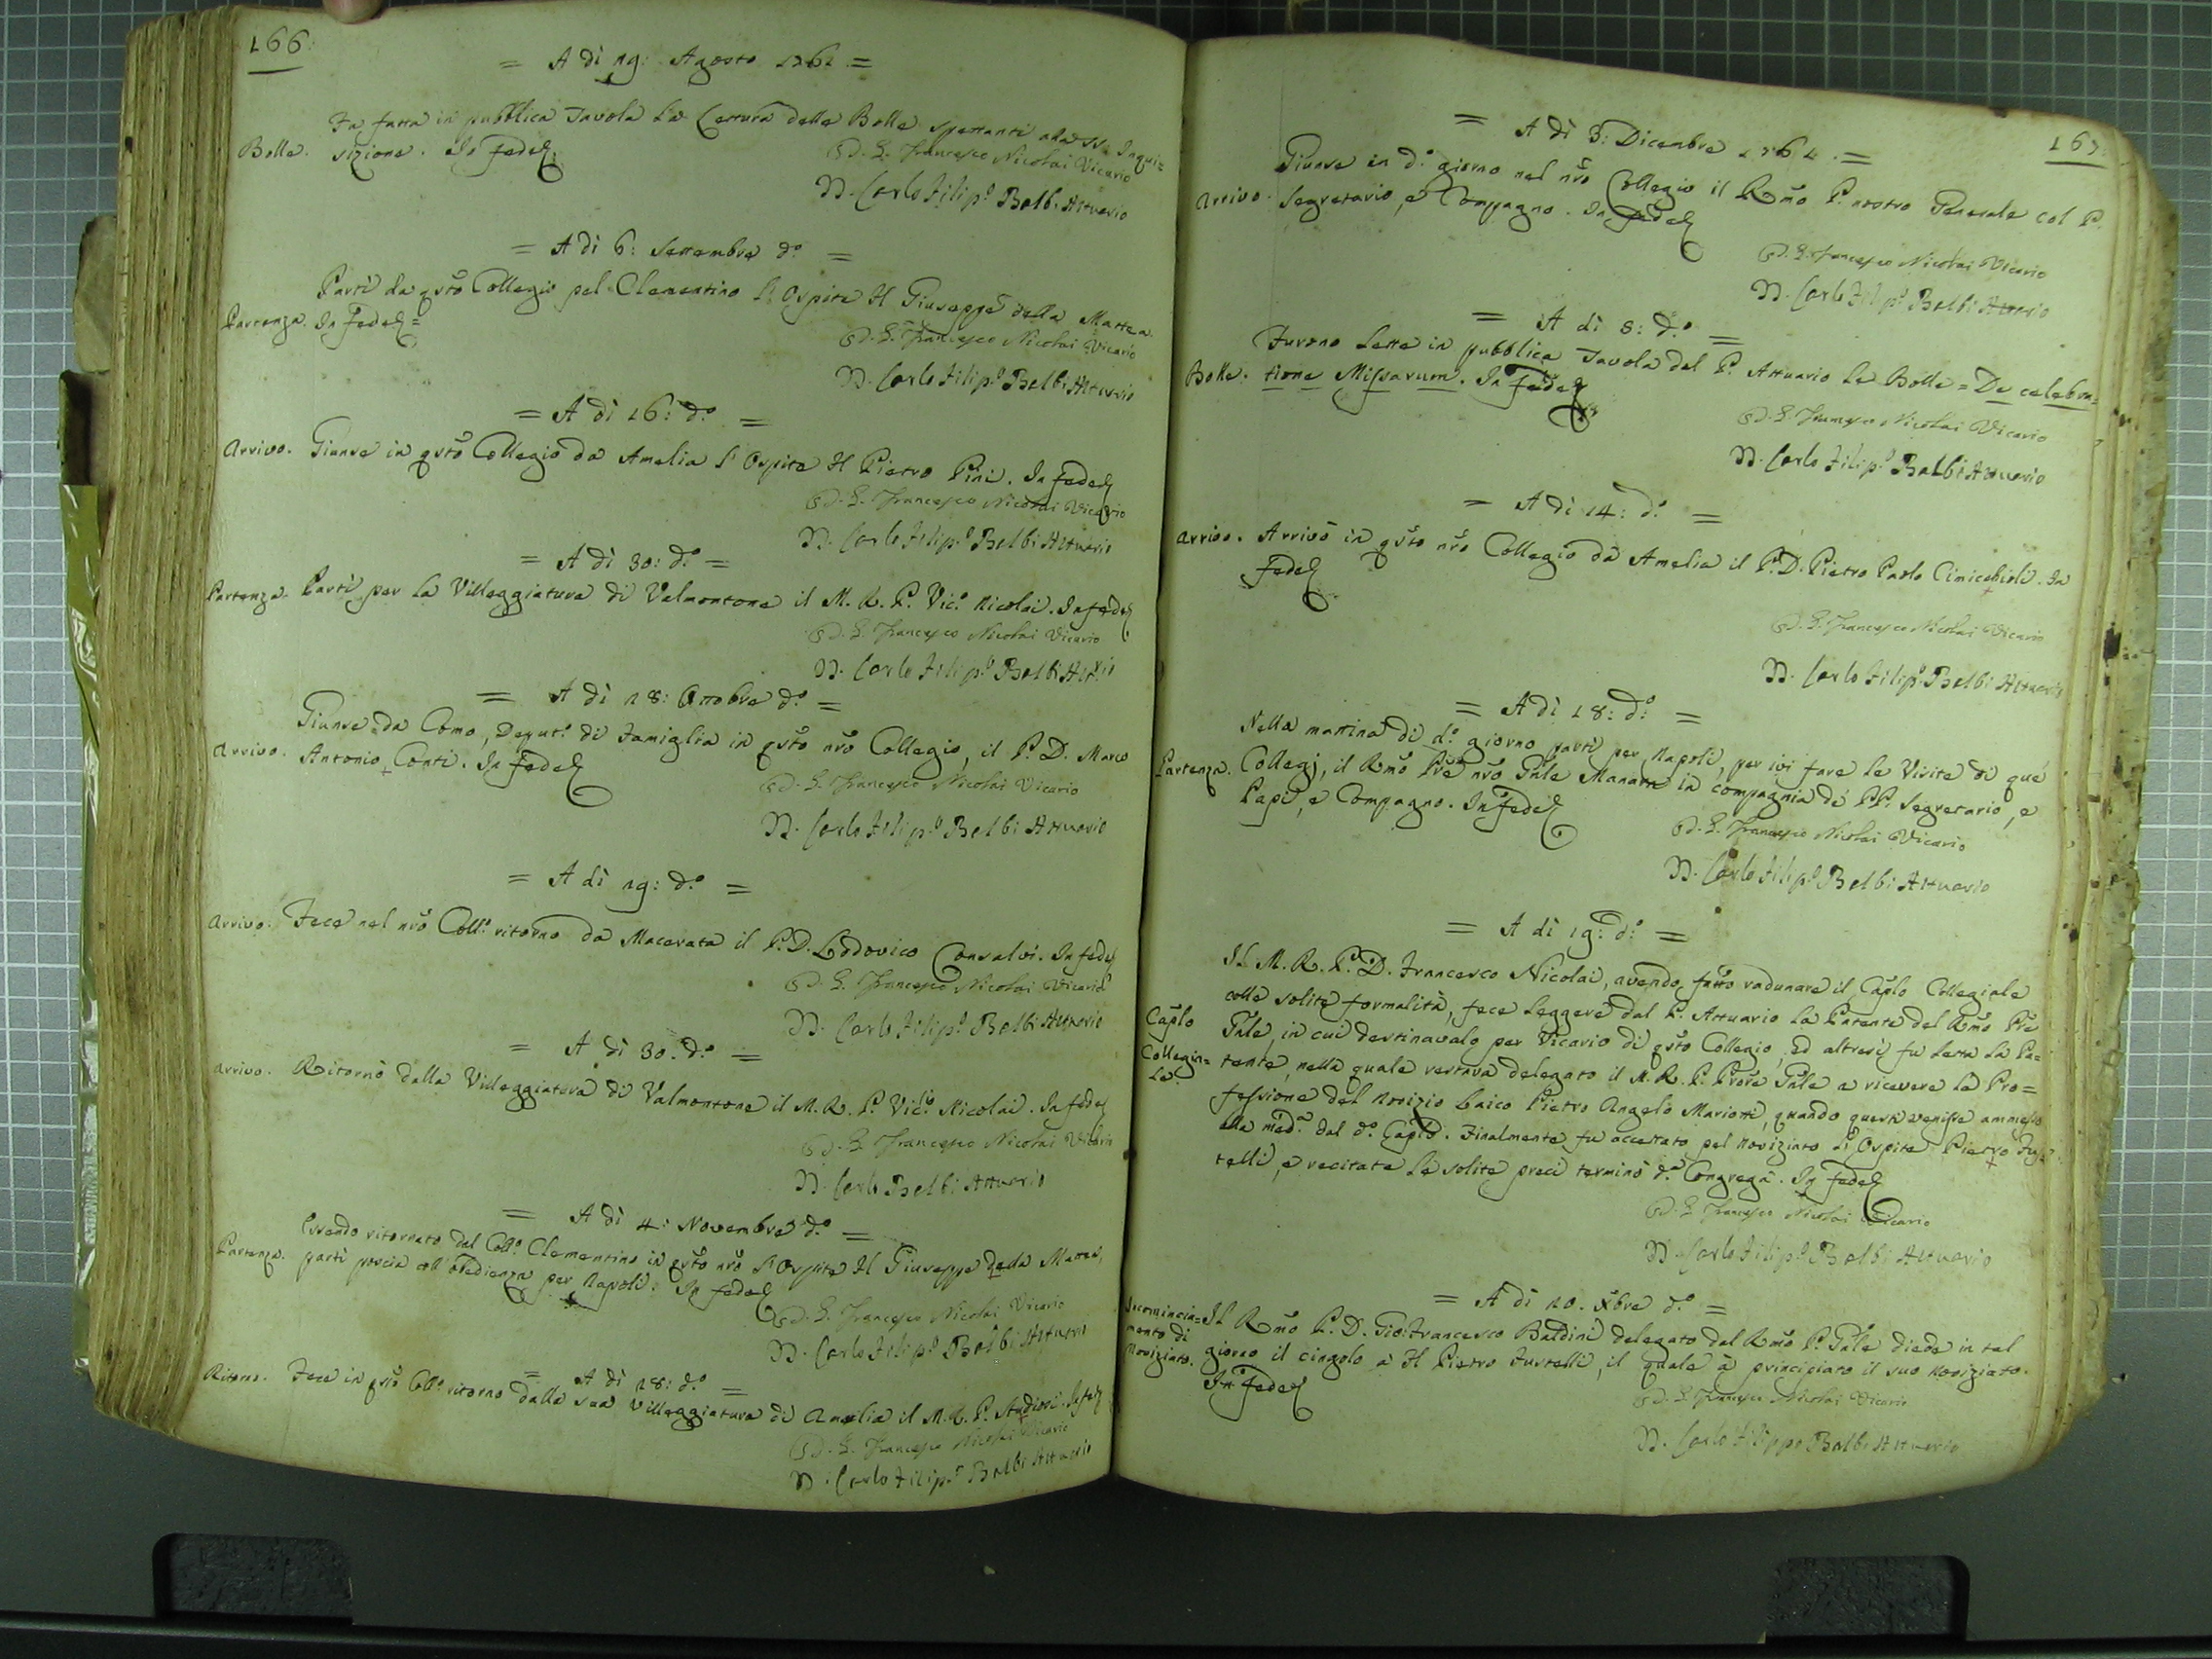 166.
= A dì 19: Agosto 1761 =
Fu fatta in pubblica Tavola la Lettura delle Bolle spettanti alla SS. Inqui=
Bolle. sizione. In fede
D. G. Francesco Nicolai Vicario
D. Carlo Filip.o Balbi Attuario
= A dì 6: Settembre d.o =
Partì da qsto Collegio pel Clementino l'Ospite Il Giuseppe della Mattea.
Partenza. In fede =
D. G. Francesco Nicolai Vicario
D. Carlo Filip.o Balbi Attuario
= A dì 16: d.o =
Arrivo. Giunse in qsto Collegio da Amelia l'Ospite Il Pietro Pini. In fede
D. G. Francesco Nicolai Vicario
D. Carlo Filip.o Balbi Attuario
= A dì 30: d.o =
Partenza. Partì per la Villeggiatura di Valmontone il M. R. P. Vic.o Nicolai. In fede
D. G. Francesco Nicolai Vicario
D. Carlo Filip.o Balbi Att.rio
= A dì 18: Ottobre d.o =
Giunse da Como, Deput.o di Famiglia in qsto nro Collegio, il P. D. Marco
Arrivo. Antonio Conti. In fede
D. G. Francesco Nicolai Vicario
D. Carlo Filip.o Balbi Attuario
= A dì 19: d.o =
Arrivo. Fece nel nro Coll.o ritorno da Macerata il P. D. Lodovico Consalvi. In fede
D. G. Francesco Nicolai Vicario
D. Carlo Filip.o Balbi Attuario
= A dì 30: d.o =
Arrivo. Ritornò dalla Villeggiatura di Valmontone il M. R. P. Vic.o Nicolai. In fede
D. G. Francesco Nicolai Vicario
D. Carlo Balbi Attuario
= A dì 4: Novembre d.o =
Essendo ritornato dal Coll.o Clementino in qsto nro l'Ospite Il Giuseppe della Mattea,
Partenza. partì poscia coll'obedienza per Napoli. In fede
D. G. Francesco Nicolai Vicario
D. Carlo Filip.o Balbi Attuario
= A dì 18: d.o =
Ritorno. Fece in qsto Coll.o ritorno dalla sua Villeggiatura di Amelia il M. R. P. In fede
D. G. Francesco Nicolai Vicario
D. Carlo Filip.o Balbi Attuario
167.
= A dì 3: Dicembre 1761. =
Giunse in d.o giorno nel nro Collegio il Rmo P. nostro Generale col P.
Arrivo. Segretario, e Compagno. In fede
D. G. Francesco Nicolai Vicario
D. Carlo Filip.o Balbi Attuario
= A dì 8: d.o =
Furono lette in pubblica Tavola dal P. Attuario le Bolle = De celebra=
Bolle. tione Missarum. In fede
D. G. Francesco Nicolai Vicario
D. Carlo Filip.o Balbi Attuario
= A dì 14: d.o =
Arrivo. Arrivò in qsto nro Collegio da Amelia il P. D. Pietro Paolo Cimicchioli. In
fede
D. G. Francesco Nicolai Vicario
D. Carlo Filip.o Balbi Attuario
= A dì 18: d.o =
Nella mattina di d.o giorno partì per Napoli, per ivi fare le Visite di que'
Partenza. Collegj, il Rmo Pre nro Gnle Manara in compagnia de' PP. Segretario, e
Papi, e Compagno. In fede
D. G. Francesco Nicolai Vicario
D. Carlo Filip.o Balbi Attuario
= A dì 19: d.o =
Il M. R. P. D. Francesco Nicolai, avendo fatto radunare il Caplo Collegiale
colle solite formalità, fece leggere dal P. Attuario la Patente del Rmo Pre
Caplo Gnle, in cui destinavalo per Vicario di qsto Collegio, Ed altresì fu letta la Pa=
Collegia= tente, nella quale restava delegato il M. R. P. Prore Gnle a ricevere la Pro=
le. fessione del Novizio Laico Pietro Angelo Mariotti, quando questi venisse ammesso
alla med.a dal d.o Caplo. Finalmente fu accettato pel Noviziato l'Ospite Pietro Fus=
telli, e recitate le solite preci terminò d.a Congreg.a. In fede
D. G. Francesco Nicolai Vicario
D. Carlo Filip.o Balbi Attuario
= A dì 20. Xbre d.o =
Incomincia= Il Rmo P. D. Gio: Francesco Baldini delegato dal Rmo P. Gnle diede in tal
mento di
Noviziato. giorno il cingolo a Il Pietro Fustelli, il quale à principiato il suo Noviziato.
In fede
D. G. Francesco Nicolai Vicario
D. Carlo Filippo Balbi Attuario